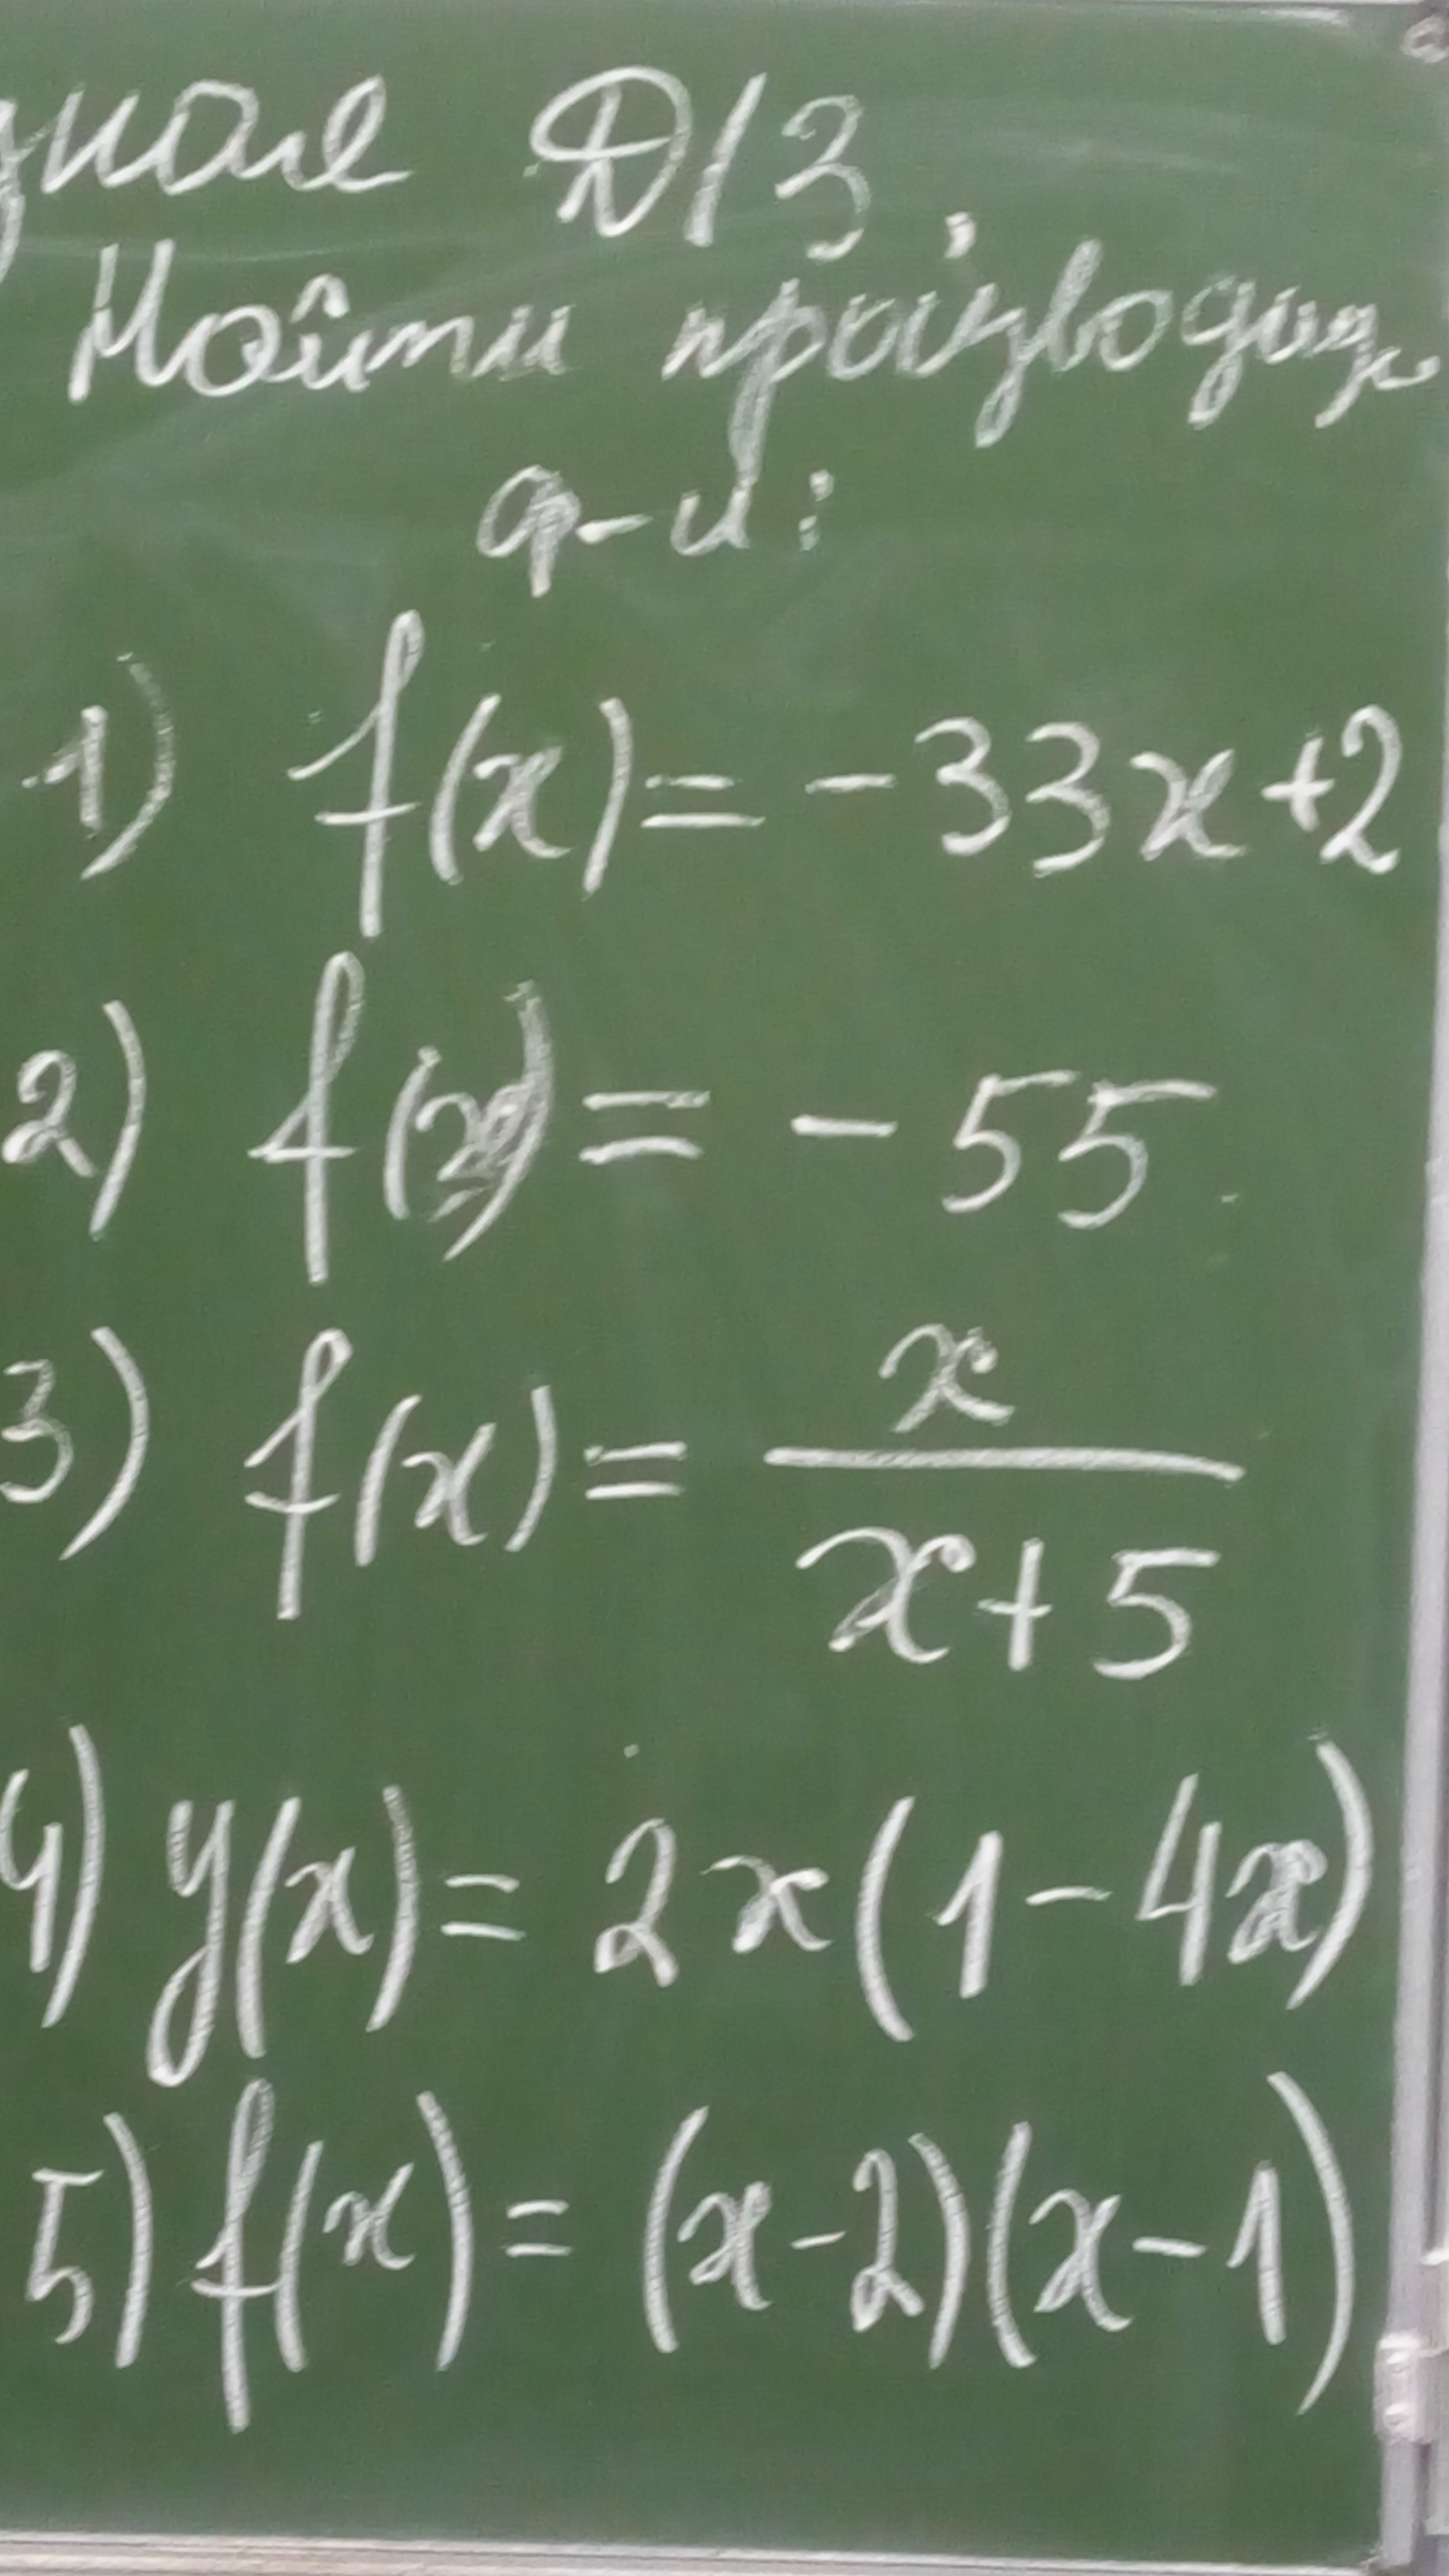 Д/З
Найти производную
ф-и:
1) f(x) = -33x+2
2) f(x) = -55
3) f(x) = x/(x+5)
4) y(x) = 2x(1-4x)
5) f(x) = (x-2)(x-1)